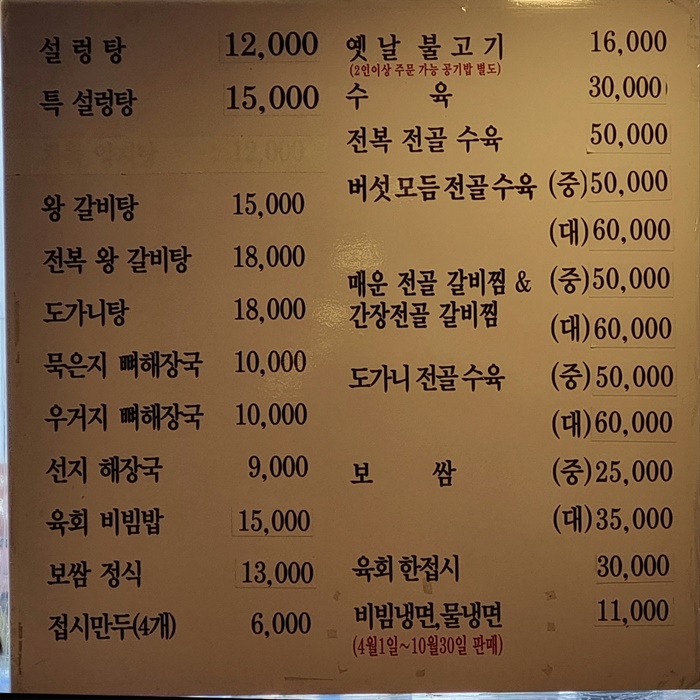 설렁탕 12,000
특 설렁탕 15,000
12,000
왕 갈비탕 15,000
전복 왕 갈비탕 18,000
도가니탕 18,000
묵은지 뼈해장국 10,000
우거지 뼈해장국 10,000
선지 해장국 9,000
육회 비빔밥 15,000
보쌈 정식 13,000
접시만두(4개) 6,000
옛날 불고기 16,000
(2인이상 주문 가능 공기밥 별도)
수 육 30,000
전복 전골 수육 50,000
버섯모듬전골수육 (중)50,000
(대)60,000
매운 전골 갈비찜 & (중)50,000
간장전골 갈비찜 (대)60,000
도가니 전골수육 (중)50,000
(대)60,000
보 쌈 (중)25,000
(대)35,000
육회한접시 30,000
비빔냉면,물냉면 11,000
(4월1일~10월30일 판매)